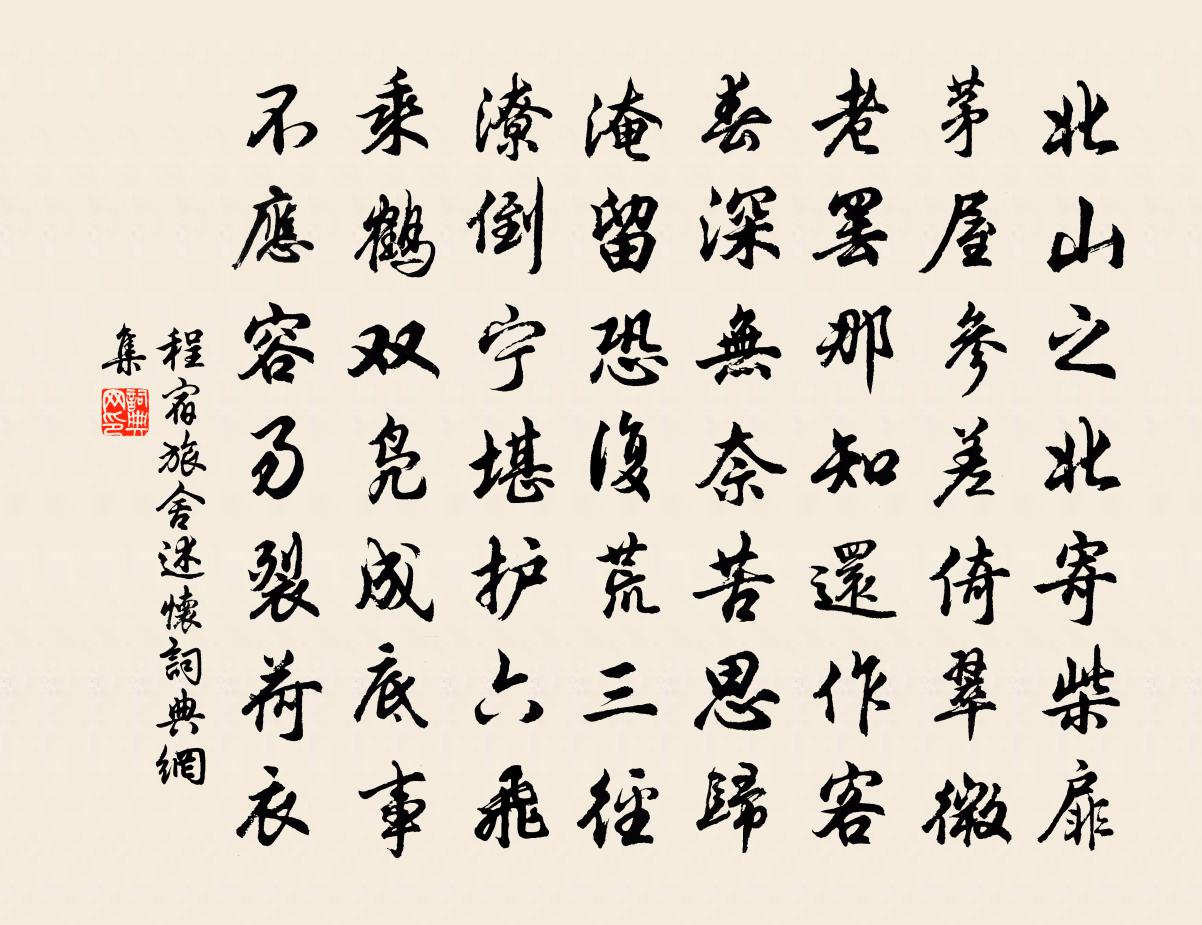 北山之北寄柴扉
茅屋參差倚翠微
老罢那知還作客
春深無奈苦思歸
淹留恐復荒三徑
潦倒宁堪护六飛
乘鶴双凫成底事
不應容易裂荷衣
程宿旅舍述懷詞典網
集
詞典网印